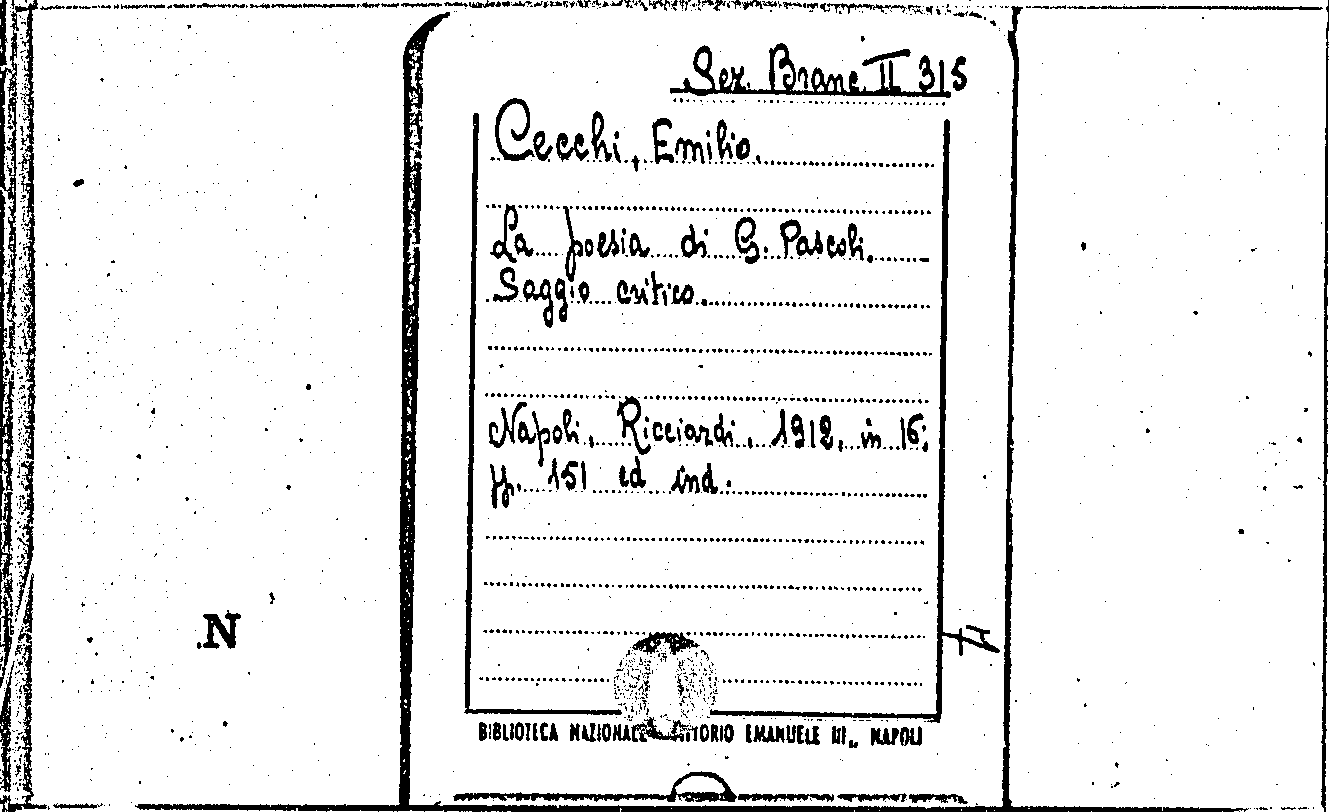 Sez. Branc. II 315
Cecchi, Emilio.
La poesia di G. Pascoli.
Saggio critico.
Napoli, Ricciardi, 1912, in 16;
pp. 151 ed ind.
N
BIBLIOTECA NAZIONALE VITTORIO EMANUELE III,, NAPOLI